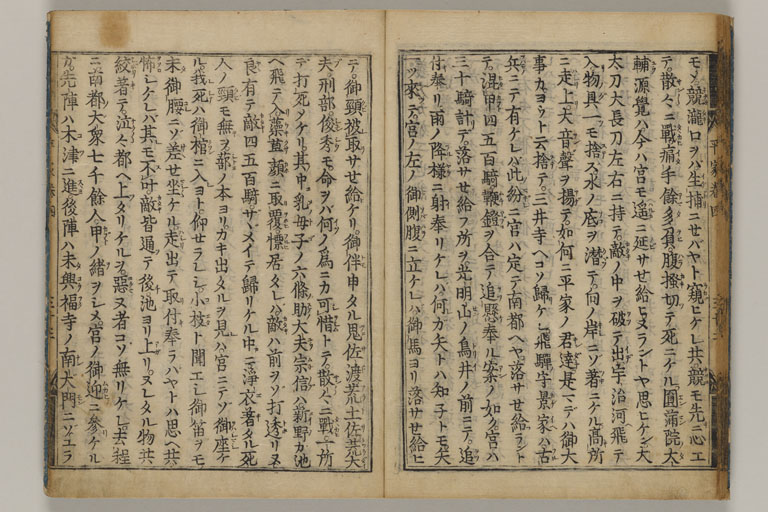 モノ競瀧口ヲバ生捕ニセバヤト窺ヒケレ共競モ先ニ心エ
テ散々ニ戰痛手餘多負腹搔切テ死ニケル圓満院大
輔源覺ハ今ハ宮モ遥ニ延サセ給ヒヌラントヤ思ヒケン大
太刀大長刀左右ニ持テ敵ノ中ヲ破テ出宇治河ヘ飛テ
入物具一モ捨ス水ノ底ヲ潜テ向ノ岸ニソ著ニケル高所
ニ走上大音聲ヲ揚テ如何ニ平家ノ君達是マデハ御大
事カヨウト云捨テ三井寺ヘコソ歸ケレ飛驒守景家ハ古
兵ニテ有ケレバ此紛ニ宮ハ定テ南都ヘヤ落サセ給ラント
テ混甲四五百騎鞭鐙ヲ合テ追懸奉ル案ノ如ク宮ハ
三十騎計デ落サセ給フ所ヲ光明山ノ鳥井ノ前ニテ追
付奉リ雨ノ降様ニ射奉リケレバ何カ矢トハ知子トモ矢
一ツ來テ宮ノ左ノ御側腹ニ立ケレバ御馬ヨリ落サセ給ヒ
テ御頸被取サセ給ケリ御伴申タル鬼佐渡荒土佐荒大
夫刑部俊秀モ命ヲバ何ノ爲ニカ可惜トテ散々ニ戰一所
デ打死シケリ其中ニ乳母子ノ六條助大夫宗信ハ新野カ池
ヘ飛テ入藻顔ニ取覆慓居タレバ敵ハ前ヲソ打透リヌ
良有テ敵四五百騎サヾメイテ歸リケル中ニ淨衣著タル死
人ノ頸モ無ヲ蔀ノ本ヨリカキ出タルヲ見ハ宮ニテソ御座ケ
ル我死ハ御棺ニ入ヨト仰セラレシ小枝ト聞エシ御笛ヲモ
未御腰ニソ差セ坐ケル走出テ取付奉ラバヤトハ思ヘ共
怖シケレバ其モ不叶敵皆通テ後池ヨリ上リヌレタル物共
絞著テ泣々都ヘ上タリケルヲ惡ヌ者コソ無リケレ去程
ニ南都大衆七千餘人甲ノ緒ヲシメ宮ノ御迎ニ參ケル
カ先陣ハ木津ニ進後陣ハ未興福寺ノ南大門ニソユラ
平家巻四